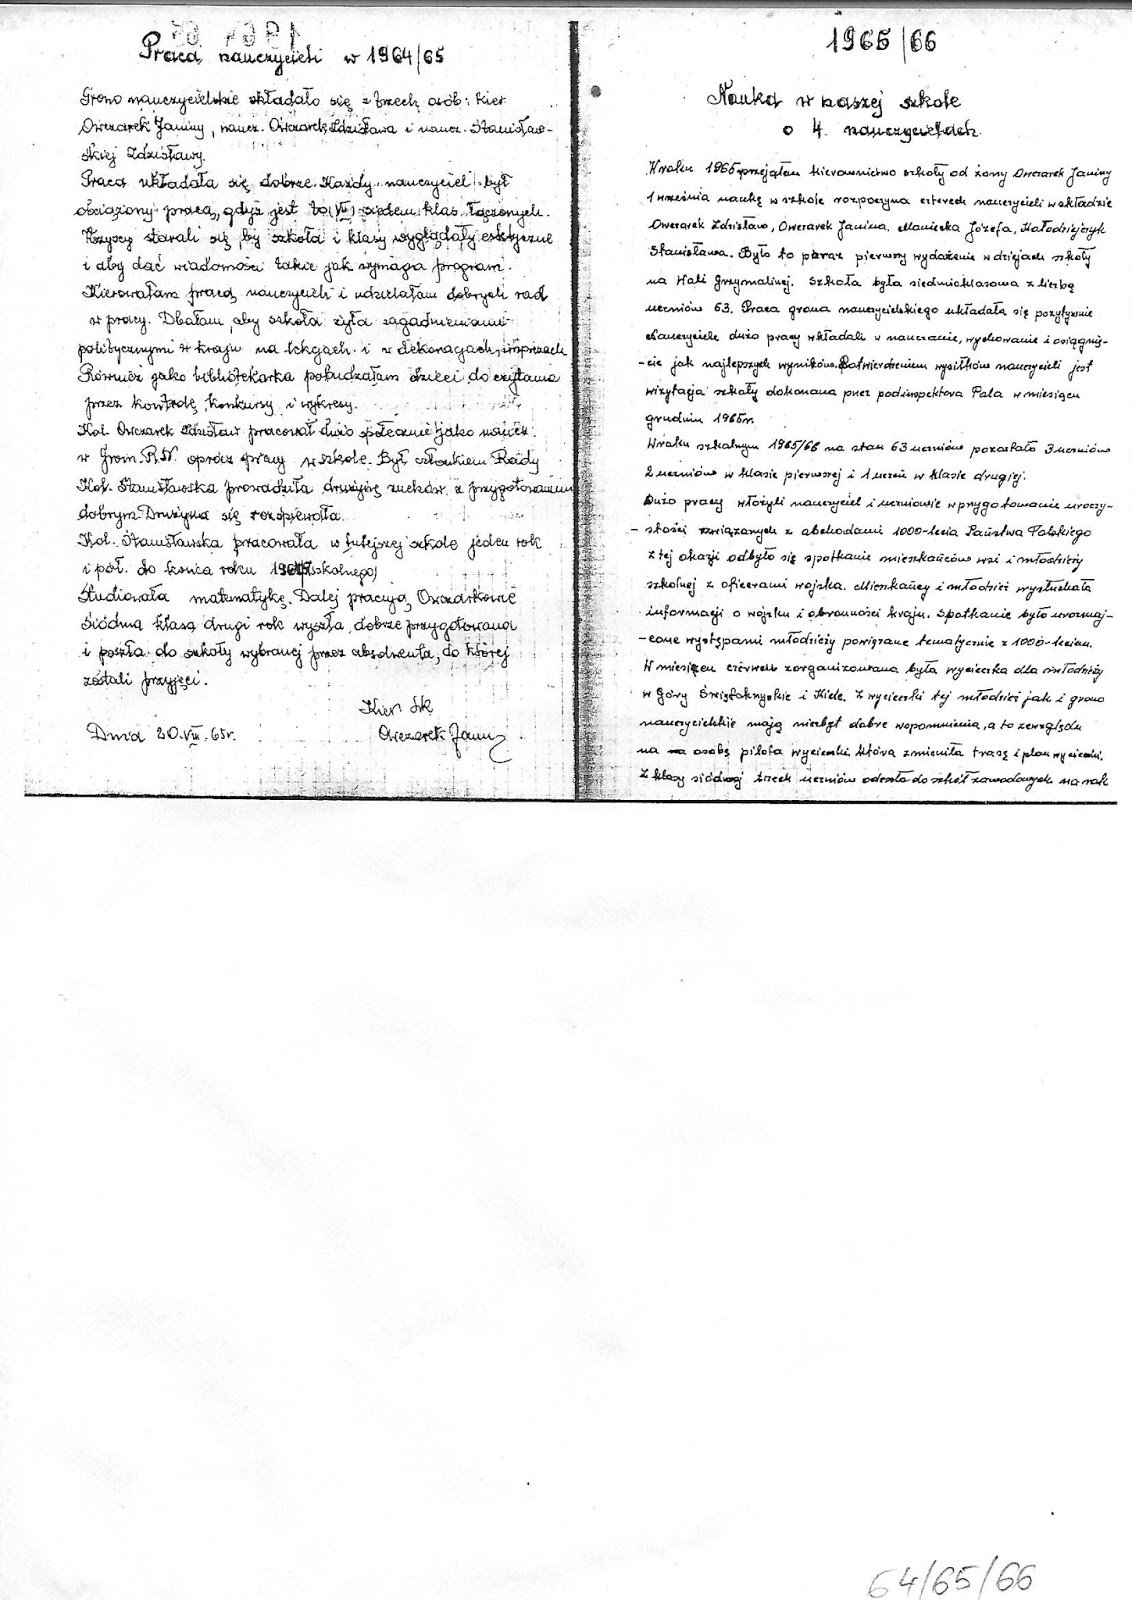 Praca nauczycieli w 1964/65
Grono nauczycielskie składało się z trzech osób: kier
Owczarek Janiny, naucz. Owczarek Zdzisława i naucz. Stanisław-
skiej Zdzisławy.
Praca układała się dobrze. Każdy nauczyciel był
obciążony pracą, gdyż jest to (VII) siedem klas łączonych.
Wszyscy starali się by szkoła i klasy wyglądały estetycznie
i aby dać wiadomości takie jak wymaga program.
Kierowałam pracą nauczycieli i udzielałam dobrych rad
w pracy. Dbałam, aby szkoła żyła zagadnieniami
politycznymi w kraju na lekcjach i w dekoracjach, imprezach
Również jako bibliotekarka pobudzałam dzieci do czytania
przez kontrolę, konkursy i wykresy.
Kol. Owczarek Zdzisław pracował dużo społecznie jako
w Grom. R.N. oprócz pracy w szkole. Był członkiem Rady
Kol. Stanisławska prowadziła drużynę zuchów z przygotowaniem
dobrym. Drużyna się rozśpiewała.
Kol. Stanisławska pracowała w tutejszej szkole jeden rok
i pół. do końca roku (szkolnego)
Studiowała matematykę. Dalej pracują Owczarkowie
Siódma klasa drugi rok wyszła dobrze przygotowana
i poszła do szkoły wybranej przez absolwenta, do której
zostali przyjęci.
Kier Szk
Dnia 20.VIII.65r. Owczarek Janin
1965/66
Nauka w naszej szkole
o 4. nauczycielach.
W roku 1965 przejąłem kierownictwo szkoły od żony Owczarek Janiny
1 września naukę w szkole rozpoczyna czterech nauczycieli w składzie
Owczarek Zdzisław, Owczarek Janina, Maniecka Józefa, Kołodziejczyk
Stanisława. Było to poraz pierwszy wydażenie w dziejach szkoły
na Woli Grzymalinej. Szkoła była siedmioklasowa z liczbą
uczniów 63. Praca grona nauczycielskiego układała się pozytywnie
Nauczyciele dużo pracy wkładali w nauczanie, wychowanie i osiągnię-
-cie jak najlepszych wyników. Potwierdzeniem wysiłków nauczycieli jest
wizytacja szkoły dokonana przez podinspektora Pala w miesiącu
grudniu 1965r.
W roku szkolnym 1965/66 na stan 63 uczniów pozostało 3 uczniów
2 uczniów w klasie pierwszej i 1 uczeń w klasie drugiej.
Dużo pracy włożyli nauczyciel i uczniowie w przygotowanie uroczy-
-stości związanych z obchodami 1000-lecia Państwa Polskiego
z tej okazji odbyło się spotkanie mieszkańców wsi i młodzieży
szkolnej z oficerami wojska. Mieszkańcy i młodzież wysłuchała
informacji o wojsku i obronności kraju. Spotkanie było urozmaj-
-cone występami młodzieży powiązane tematycznie z 1000-leciem.
W miesiącu czerwcu zorganizowana była wycieczka dla młodzieży
w Góry Świętokrzyskie i Kielc. Z wycieczki tej młodzież jak i grono
nauczycielskie mają niezbyt dobre wspomnienia, a to ze względu
na osobę pilota wycieczki która zmieniła trasę i plan wycieczki.
Z klasy siódmej trzech uczniów odeszło do szkół zawodowych na rok
64/65/66